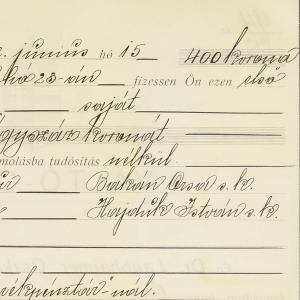 . június hó 15 400 korona
hó 23-án fizessen Ön ezen első
saját
égyszáz koronát
molásba tudósitás nélkül.
Bakán Orsa s.k.
Hajdúk István s.k.
rékpénztár-nál.